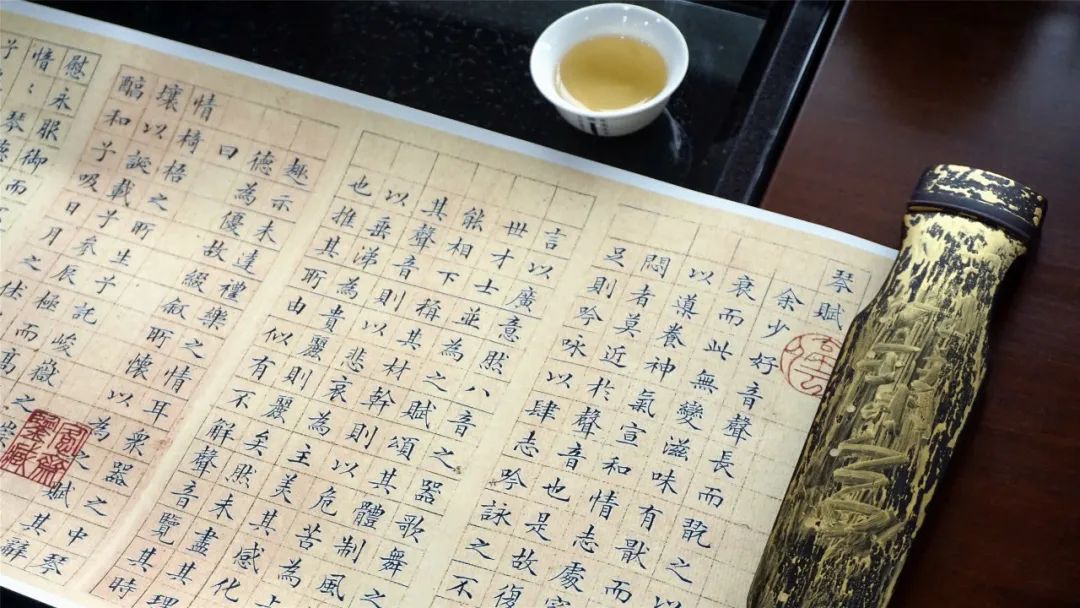 琴賦
余少好音聲長而翫之
衰而此無變滋味有猒而
以導養神氣宣和情志處
悶者莫近於聲音也是故復
足則吟咏以肆志吟詠之不
言以廣意然八音之器歌舞
世才士並為之賦頌其體制風
能相下稱其材幹則以危苦為上
其聲音則以悲哀為主美其感化
以垂涕為貴麗則麗矣然未盡其理
也推其所由似有不解聲音覽其時
趣示未達禮樂之情耳衆器之中琴
德為優故綴叙所懷以為之賦其辭
曰
情
椅梧之所生兮託峻嶽之崇
壤以誕載兮參辰極而高
醕和兮吸日月之休
慰永服御而
愔〻琴德